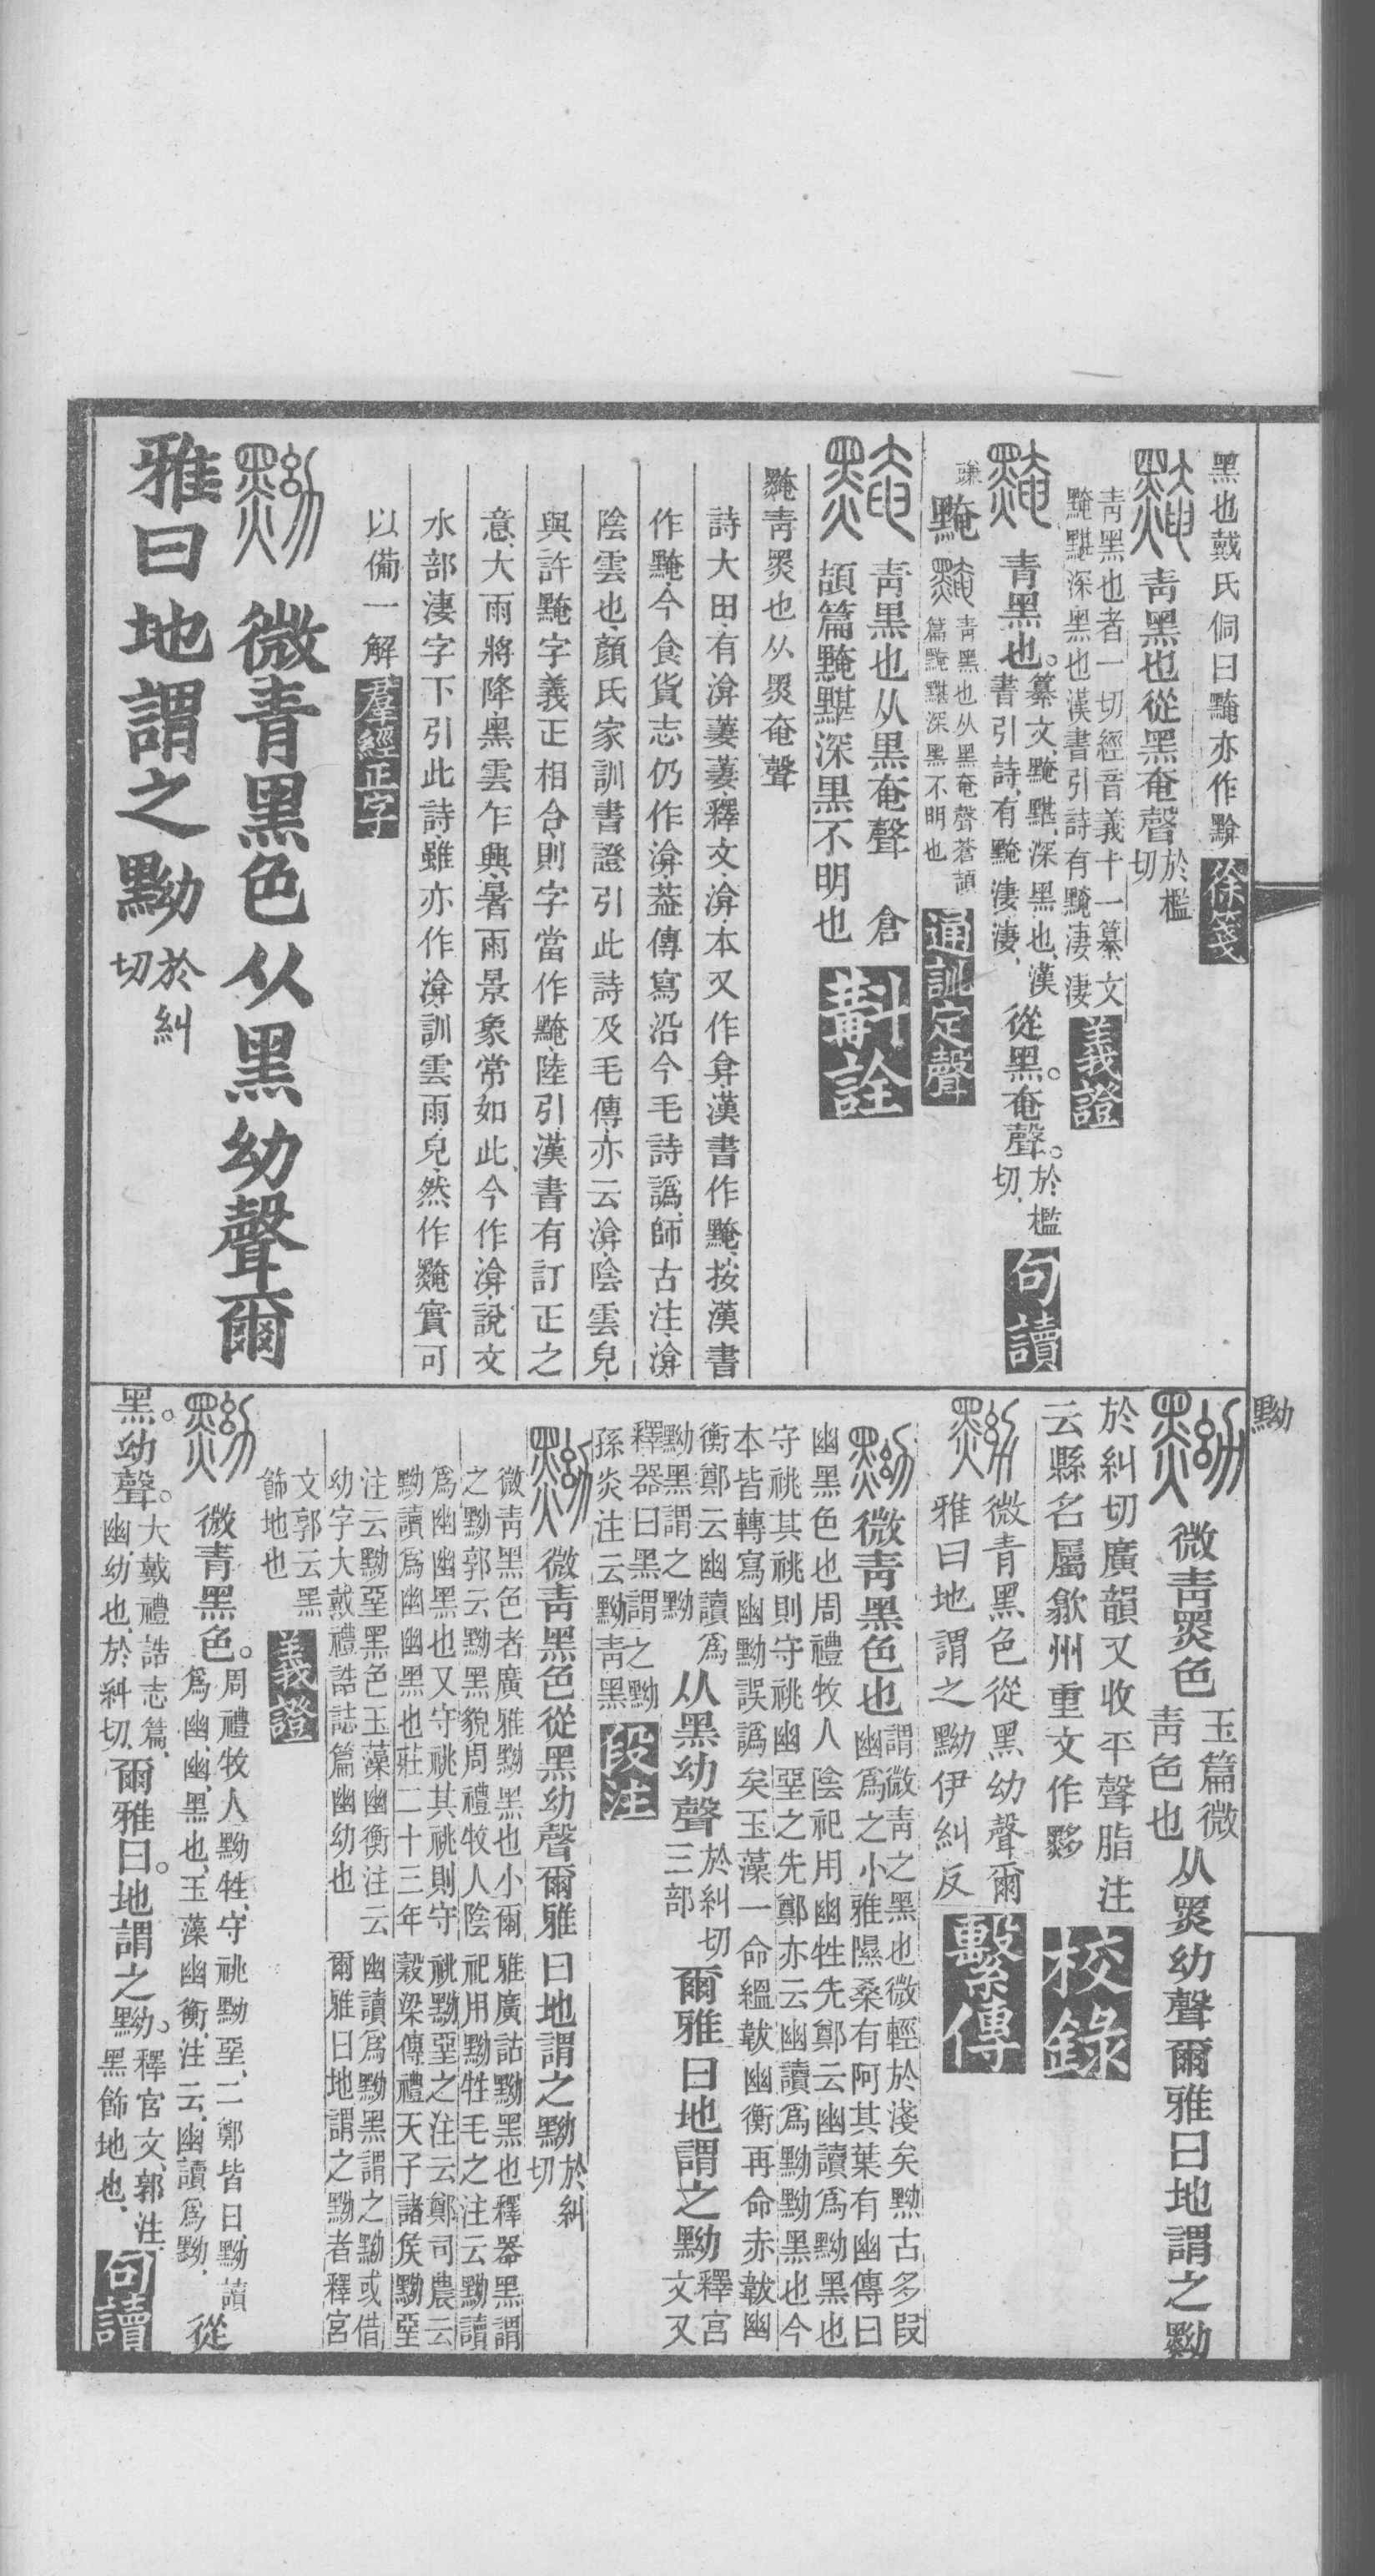 黑也戴氏侗曰黤亦作黭 徐箋
青黑也從黑奄聲 於檻切
青黑也者一切經音義十一纂文
黤黮深黑也漢書引詩有黤淒淒 義證
青黑也。纂文、黤黮、深黑也、漢書引詩、有黤淒淒、從黑。奄聲。於檻切、 句讀
黤 青黑也从黑奄聲蒼頡篇黤黮深黑不明也 通訓定聲
青黑也从黑奄聲 倉
頡篇黤黮深黑不明也 斠詮
黤青黑也从黑奄聲
詩大田、有渰萋萋、釋文、渰、本又作弇、漢書作黤、按漢書
作黤、今食貨志仍作渰、葢傳寫沿今毛詩譌、師古注、渰、
陰雲也、顏氏家訓書證引此詩及毛傳、亦云渰、陰雲皃、
與許黤字義正相合、則字當作黤、陸引漢書有訂正之
意、大雨將降、黑雲乍興、暑雨景象常如此、今作渰、說文
水部淒字下引此詩、雖亦作渰、訓雲雨皃、然作黤實可
以備一解 羣經正字
微青黑色从黑幼聲爾
雅曰地謂之黝 於糾切
黝
微青黑色 玉篇微青色也 从黑幼聲爾雅曰地謂之黝
於糾切廣韻又收平聲脂注
云縣名屬歙州重文作黟 校錄
微青黑色從黑幼聲爾
雅曰地謂之黝伊糾反 繫傳
微青黑色也 謂微青之黑也微輕於淺矣黝古多叚
幽爲之小雅隰桑有阿其葉有幽傳曰
幽黑色也周禮牧人陰祀用幽牲先鄭云幽讀爲黝黑也
守祧其祧則守祧幽堊之先鄭亦云幽讀爲黝黝黑也今
本皆轉寫幽黝誤譌矣玉藻一命縕韍幽衡再命赤韍幽
衡鄭云幽讀爲黝黑謂之黝 从黑幼聲 於糾切三部 爾雅曰地謂之黝 釋宮文又
釋器曰黑謂之黝
孫炎注云黝青黑 段注
微青黑色從黑幼聲爾雅曰地謂之黝 於糾切
微青黑色者廣雅黝黑也小爾雅廣詁黝黑也釋器黑謂
之黝郭云黝黑貌周禮牧人陰祀用黝牲毛之注云黝讀
爲幽幽黑也又守祧其祧則守祧黝堊之注云鄭司農云
黝讀爲幽幽黑也莊二十三年穀梁傳禮天子諸侯黝堊
注云黝堊黑色玉藻幽衡注云幽讀爲黝黑謂之黝或借
幼字大戴禮誥誌篇幽幼也 爾雅曰地謂之黝者釋宮
文郭云黑
飾地也 義證
微青黑色。周禮牧人、黝牲、守祧黝堊、二鄭皆曰、黝讀爲幽、幽、黑也、玉藻幽衡、注云、幽讀爲黝、從
黑。幼聲。大戴禮誥志篇、幽、幼也、於糾切、爾雅曰。地謂之黝。釋宮文、郭注、黑飾地也、 句讀